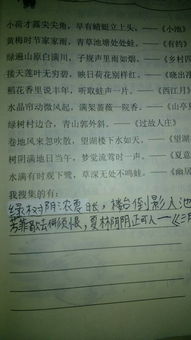 小荷才露尖尖角，早有蜻蜓立上头。——《小池》
黄梅时节家家雨，青草池塘处处蛙。——《有约》
绿遍山原白满川，子规声里雨如烟。——《乡村四
接天莲叶无穷碧，映日荷花别样红。——《晓出净
稻花香里说丰年，听取蛙声一片。——《西江月》
水晶帘动微风起，满架蔷薇一院香。——《山亭夏
绿树村边合，青山郭外斜。——《过故人庄》
卷地风来忽吹散，望湖楼下水如天。——《
树阴满地日当午，梦觉流莺时一声。——《夏意
水满有时观下鹭，草深无处不鸣蛙。——《
我搜集的有：
绿树阴浓夏日长，楼台倒影入池
芳菲歇去何须恨，夏木阴阴正可人——《三月